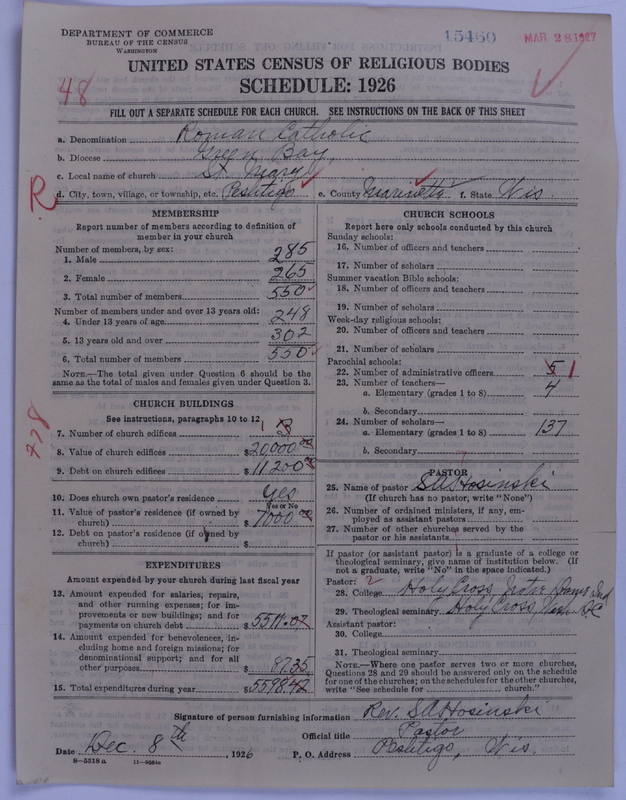 DEPARTMENT OF COMMERCE
BUREAU OF THE CENSUS
WASHINGTON
15460
MAR 28 1927
UNITED STATES CENSUS OF RELIGIOUS BODIES
SCHEDULE: 1926
48
FILL OUT A SEPARATE SCHEDULE FOR EACH CHURCH. SEE INSTRUCTIONS ON THE BACK OF THIS SHEET
a. Denomination Roman Catholic
b. Diocese Green Bay,
c. Local name of church St. Mary
R d. City, town, village, or township, etc. Peshtigo e. County Marinette f. State Wis.
MEMBERSHIP
Report number of members according to definition of
member in your church
Number of members, by sex:
1. Male 285
2. Female 265
3. Total number of members 550
Number of members under and over 13 years old:
4. Under 13 years of age 248
5. 13 years old and over 302
6. Total number of members 550
NOTE.—The total given under Question 6 should be the
same as the total of males and females given under Question 3.
CHURCH BUILDINGS
See instructions, paragraphs 10 to 12
7. Number of church edifices 1 3
8. Value of church edifices $20,000 00
9. Debt on church edifices $11,200
10. Does church own pastor's residence Yes
Yes or No
11. Value of pastor's residence (if owned by
church) $7000 00
12. Debt on pastor's residence (if owned by
church) $
EXPENDITURES
Amount expended by your church during last fiscal year
13. Amount expended for salaries, repairs,
and other running expenses; for im-
provements or new buildings; and for
payments on church debt $5511.07
14. Amount expended for benevolences, in-
cluding home and foreign missions; for
denominational support; and for all
other purposes $87.35
15. Total expenditures during year $5598.42
CHURCH SCHOOLS
Report here only schools conducted by this church
Sunday schools:
16. Number of officers and teachers
17. Number of scholars
Summer vacation Bible schools:
18. Number of officers and teachers
19. Number of scholars
Week-day religious schools:
20. Number of officers and teachers
21. Number of scholars
Parochial schools:
22. Number of administrative officers 5 1
23. Number of teachers—
a. Elementary (grades 1 to 8) 4
b. Secondary
24. Number of scholars—
a. Elementary (grades 1 to 8) 137
b. Secondary
PASTOR
25. Name of pastor S A Hosinski
(If church has no pastor, write "None")
26. Number of ordained ministers, if any, em-
ployed as assistant pastors
27. Number of other churches served by the
pastor or his assistant
If pastor (or assistant pastor) is a graduate of a college or
theological seminary, give name of institution below. (If
not a graduate, write "No" in the space indicated.)
Pastor: 2
28. College Holy Cross, Notre Dame Ind
29. Theological seminary Holy Cross, Wash D.C
Assistant pastor:
30. College
31. Theological seminary
NOTE.—Where one pastor serves two or more churches,
Questions 28 and 29 should be answered only on the schedule
for one of the churches; on the schedules for the other churches,
write "See schedule for church."
Signature of person furnishing information Rev. S A Hosinski
Official title Pastor
Date Dec. 8th, 1926 P. O. Address Peshtigo, Wis.